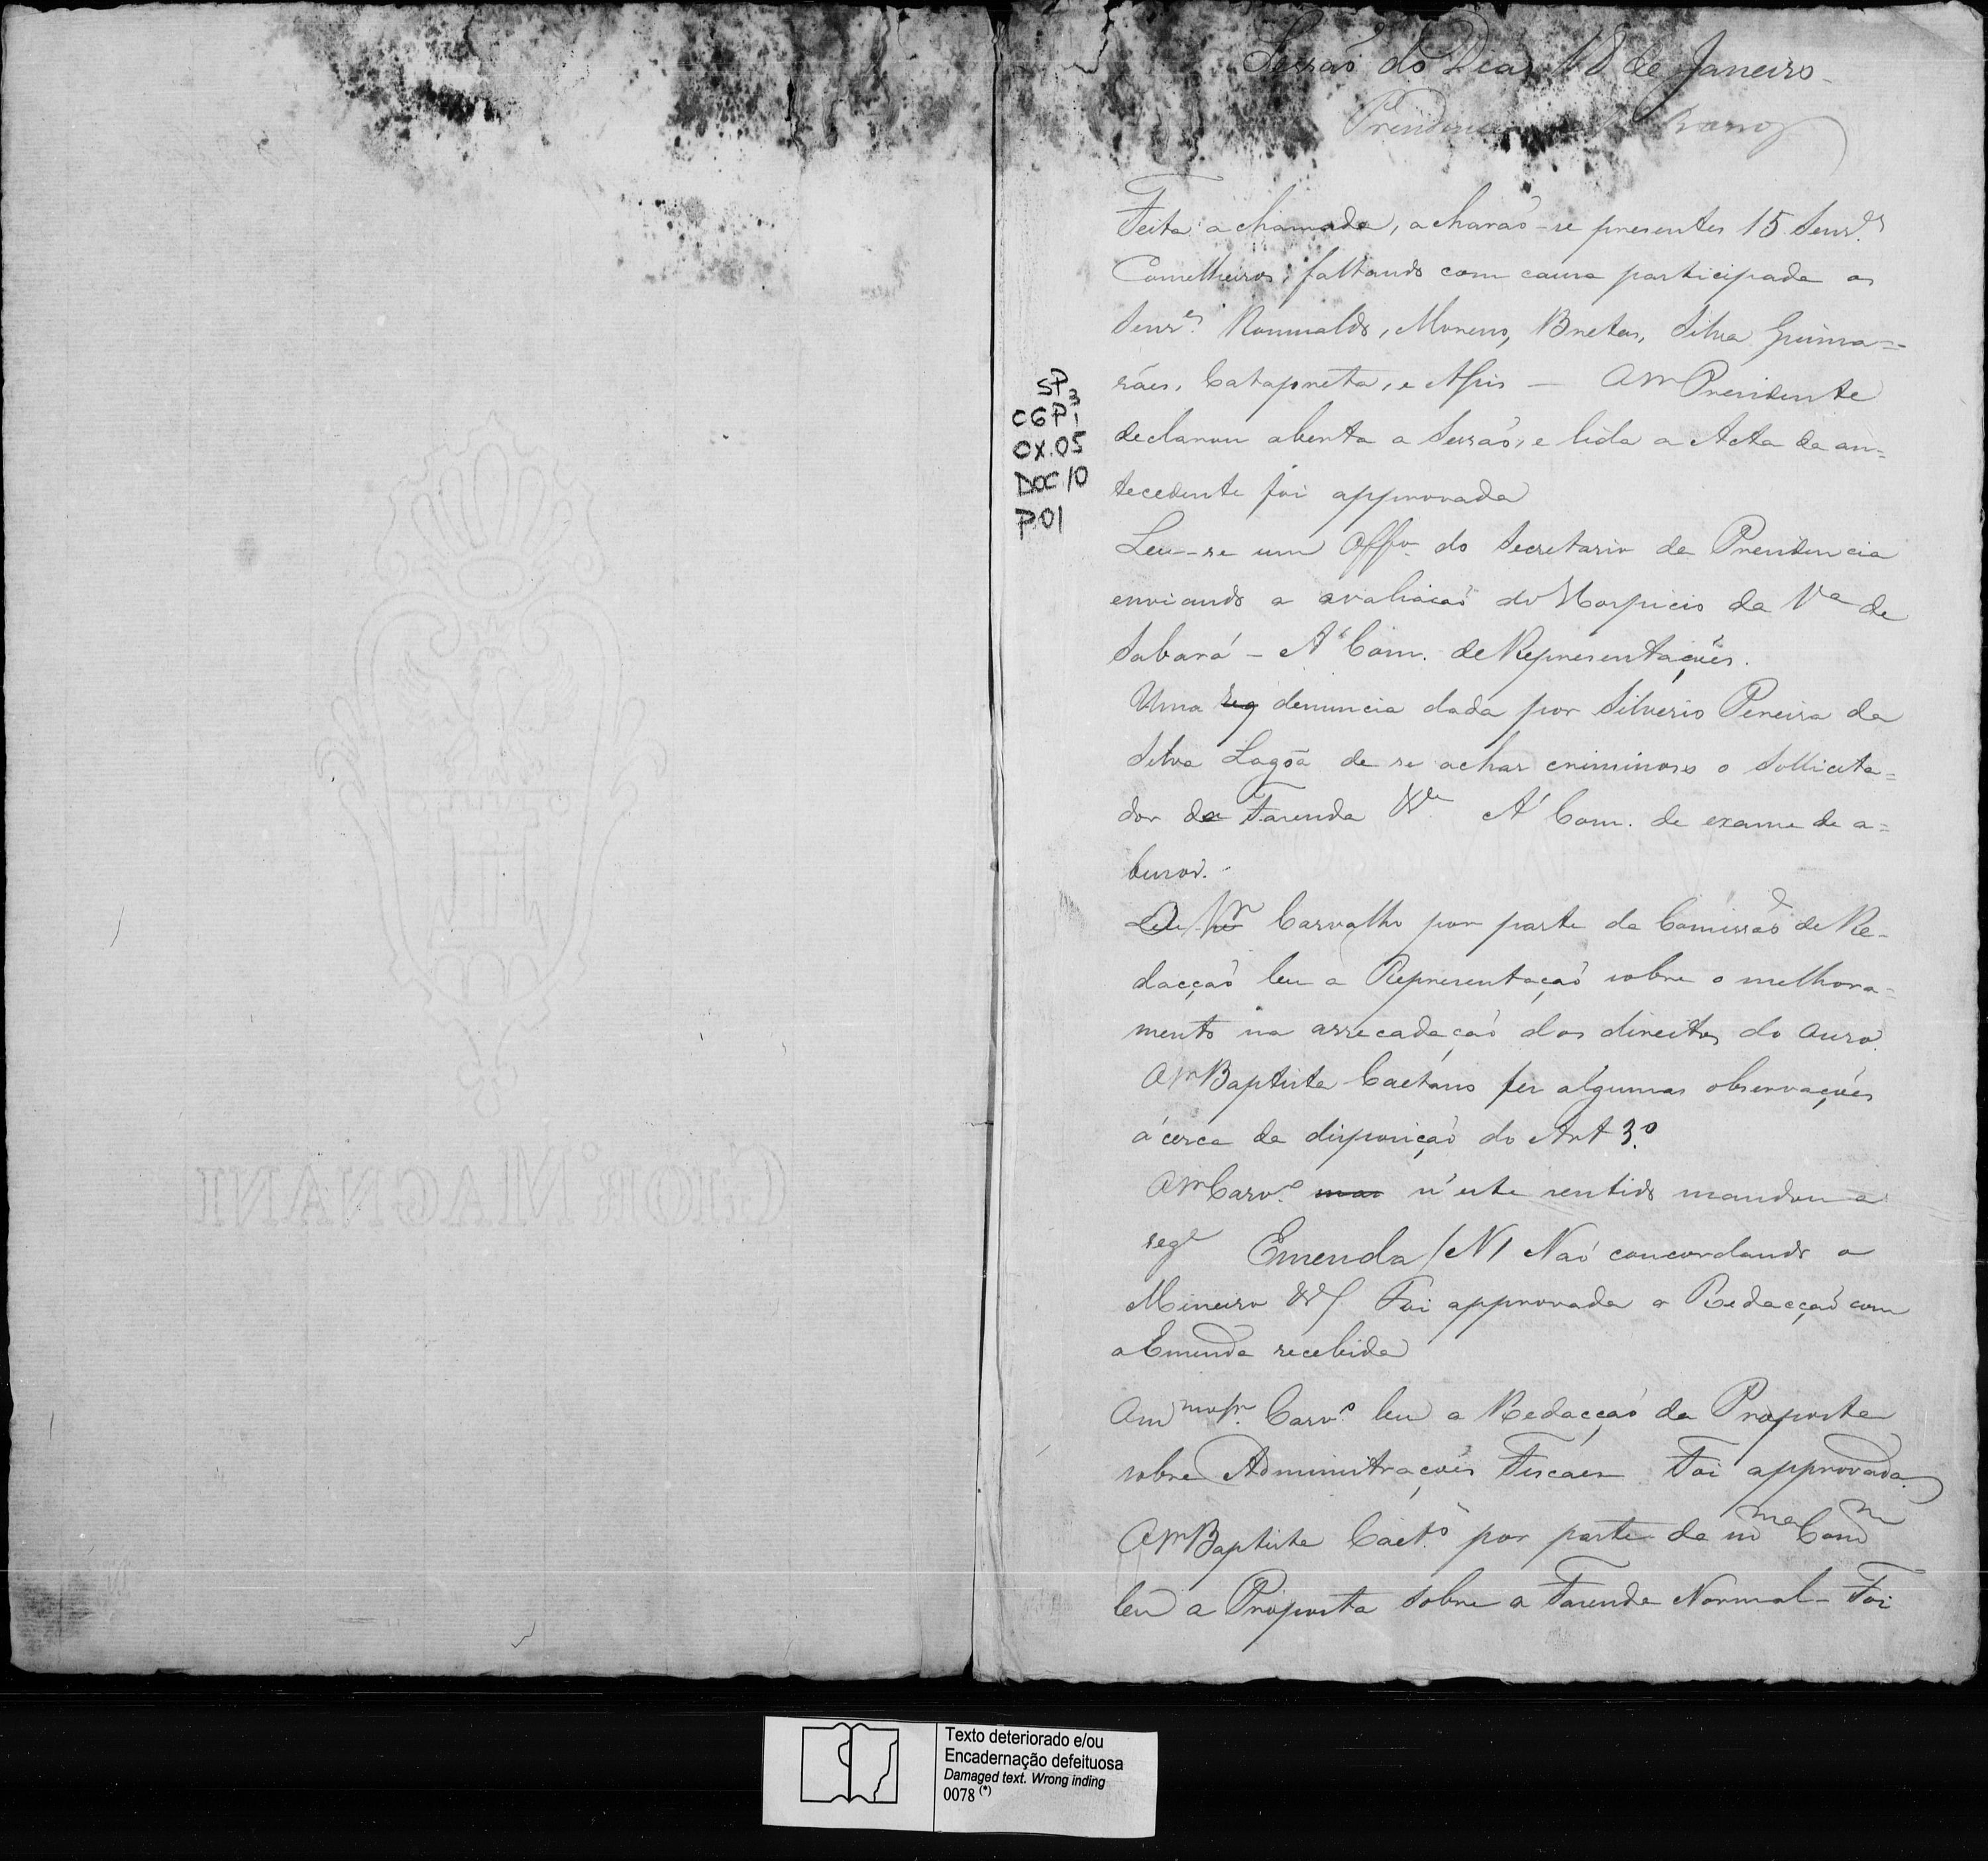 Sessaõ do Dia 18 de Janeiro
Presidencia
Feita a chamada, acharaõ-se presentes 15 Senr.es
Conselheiros, faltando com causa participada os
Senr.es Romualdo, Moreno, Bretas, Silva Guima=
rães, Catapreta, e Assis — O Sr Presidente
declarou aberta a Sessaõ, e lida a Acta da an=
tecedente foi approvada
Leu-se um Offo do Secretario da Presidencia
enviando a avaliaçaõ do Hospicio da Va de
Sabará - A' Com. de Representações.
Uma seg denuncia dada por Silverio Pereira da
Silva Lagôa de se achar criminoso o Sollicita=
dor da Fazenda &a A' Com. de exame de a=
busos.
O Sr Carvalho por parte da Comissaõ de Re-
dacçaõ leu a Representaçaõ sobre o melhora=
mento na arrecadaçaõ dos direitos do Ouro.
O Sr Baptista Caetano fez algumas observações
ácerca da disposiçaõ do Art 3.o
O Sr Carv.o man n'este sentido mandou a
sege Emenda /N/ Naõ concordando o
Mineiro &/ Foi approvada a Redacçaõ com
a Emenda recebida
O m mo Sr. Carv.o leu a Redacçaõ da Proposta
sobre Administrações Fiscaes Foi approvada.
O Sr Baptista Caet.o por parte da m ma Com m
leu a Proposta sobre a Fazenda Normal - Foi
SP
3
CGP1
CX.05
DOC 10
P.01
GIOR MAGNANI
Texto deteriorado e/ou
Encadernação defeituosa
Damaged text. Wrong inding
0078 (*)